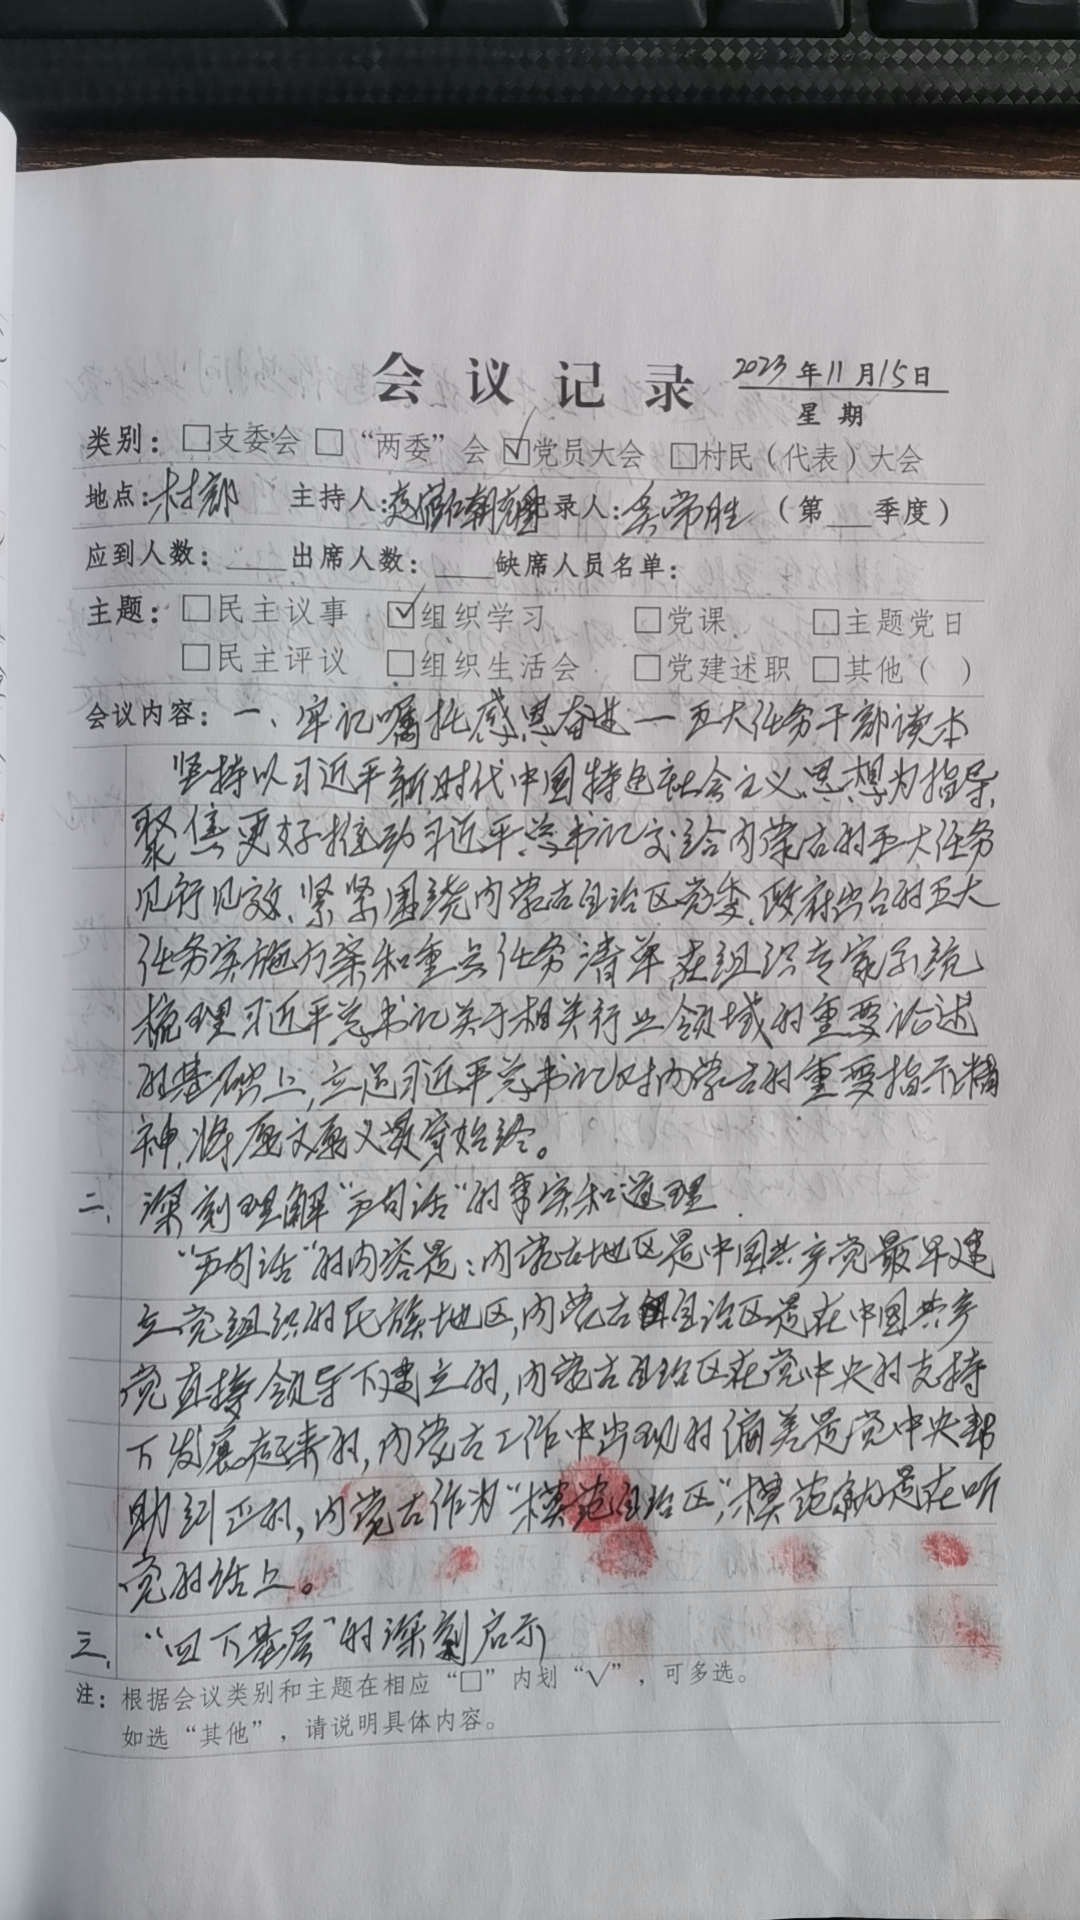 会议记录 2023年11月15日
星期
类别：□支委会 □“两委”会 ☑党员大会 □村民（代表）大会
地点：村部 主持人： 记录人：吴常胜 （第 季度）
应到人数： 出席人数： 缺席人员名单：
主题：□民主议事 ☑组织学习 □党课 □主题党日
□民主评议 □组织生活会 □党建述职 □其他（ ）
会议内容：一、牢记嘱托感恩奋进—五大任务干部读本
坚持以习近平新时代中国特色社会主义思想为指导，
聚焦更好推动习近平总书记交给内蒙古的五大任务
见行见效、紧紧围绕内蒙古自治区党委、政府出台的五大
任务实施方案和重点任务清单，在组织专家系统
梳理习近平总书记关于相关行业领域的重要论述
的基础上，立足习近平总书记对内蒙古的重要指示精
神，将原文原义贯穿始终。
二、深刻理解“五句话”的事实和道理.
“五句话”的内容是：内蒙古地区是中国共产党最早建
立党组织的民族地区，内蒙古自治区是在中国共产
党直接领导下建立的，内蒙古自治区在党中央的支持
下发展起来的，内蒙古工作中出现的偏差是党中央帮
助纠正的，内蒙古作为“模范自治区”，模范就是在听
党的话上。
三、“四下基层”的深刻启示
注：根据会议类别和主题在相应“□”内划“√”，可多选。
如选“其他”，请说明具体内容。